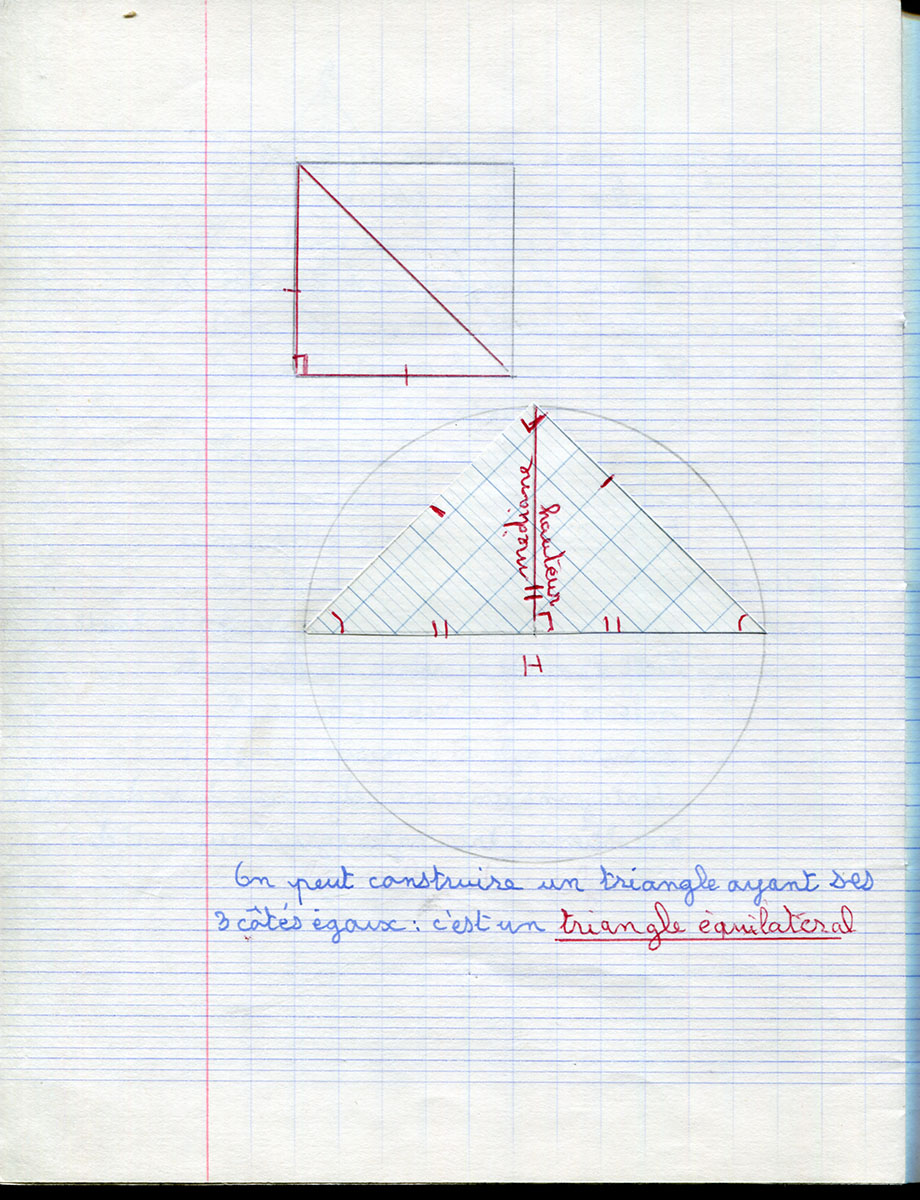 médiane
hauteur
H
On peut construire un triangle ayant ses
3 côtés égaux : c'est un triangle équilatéral